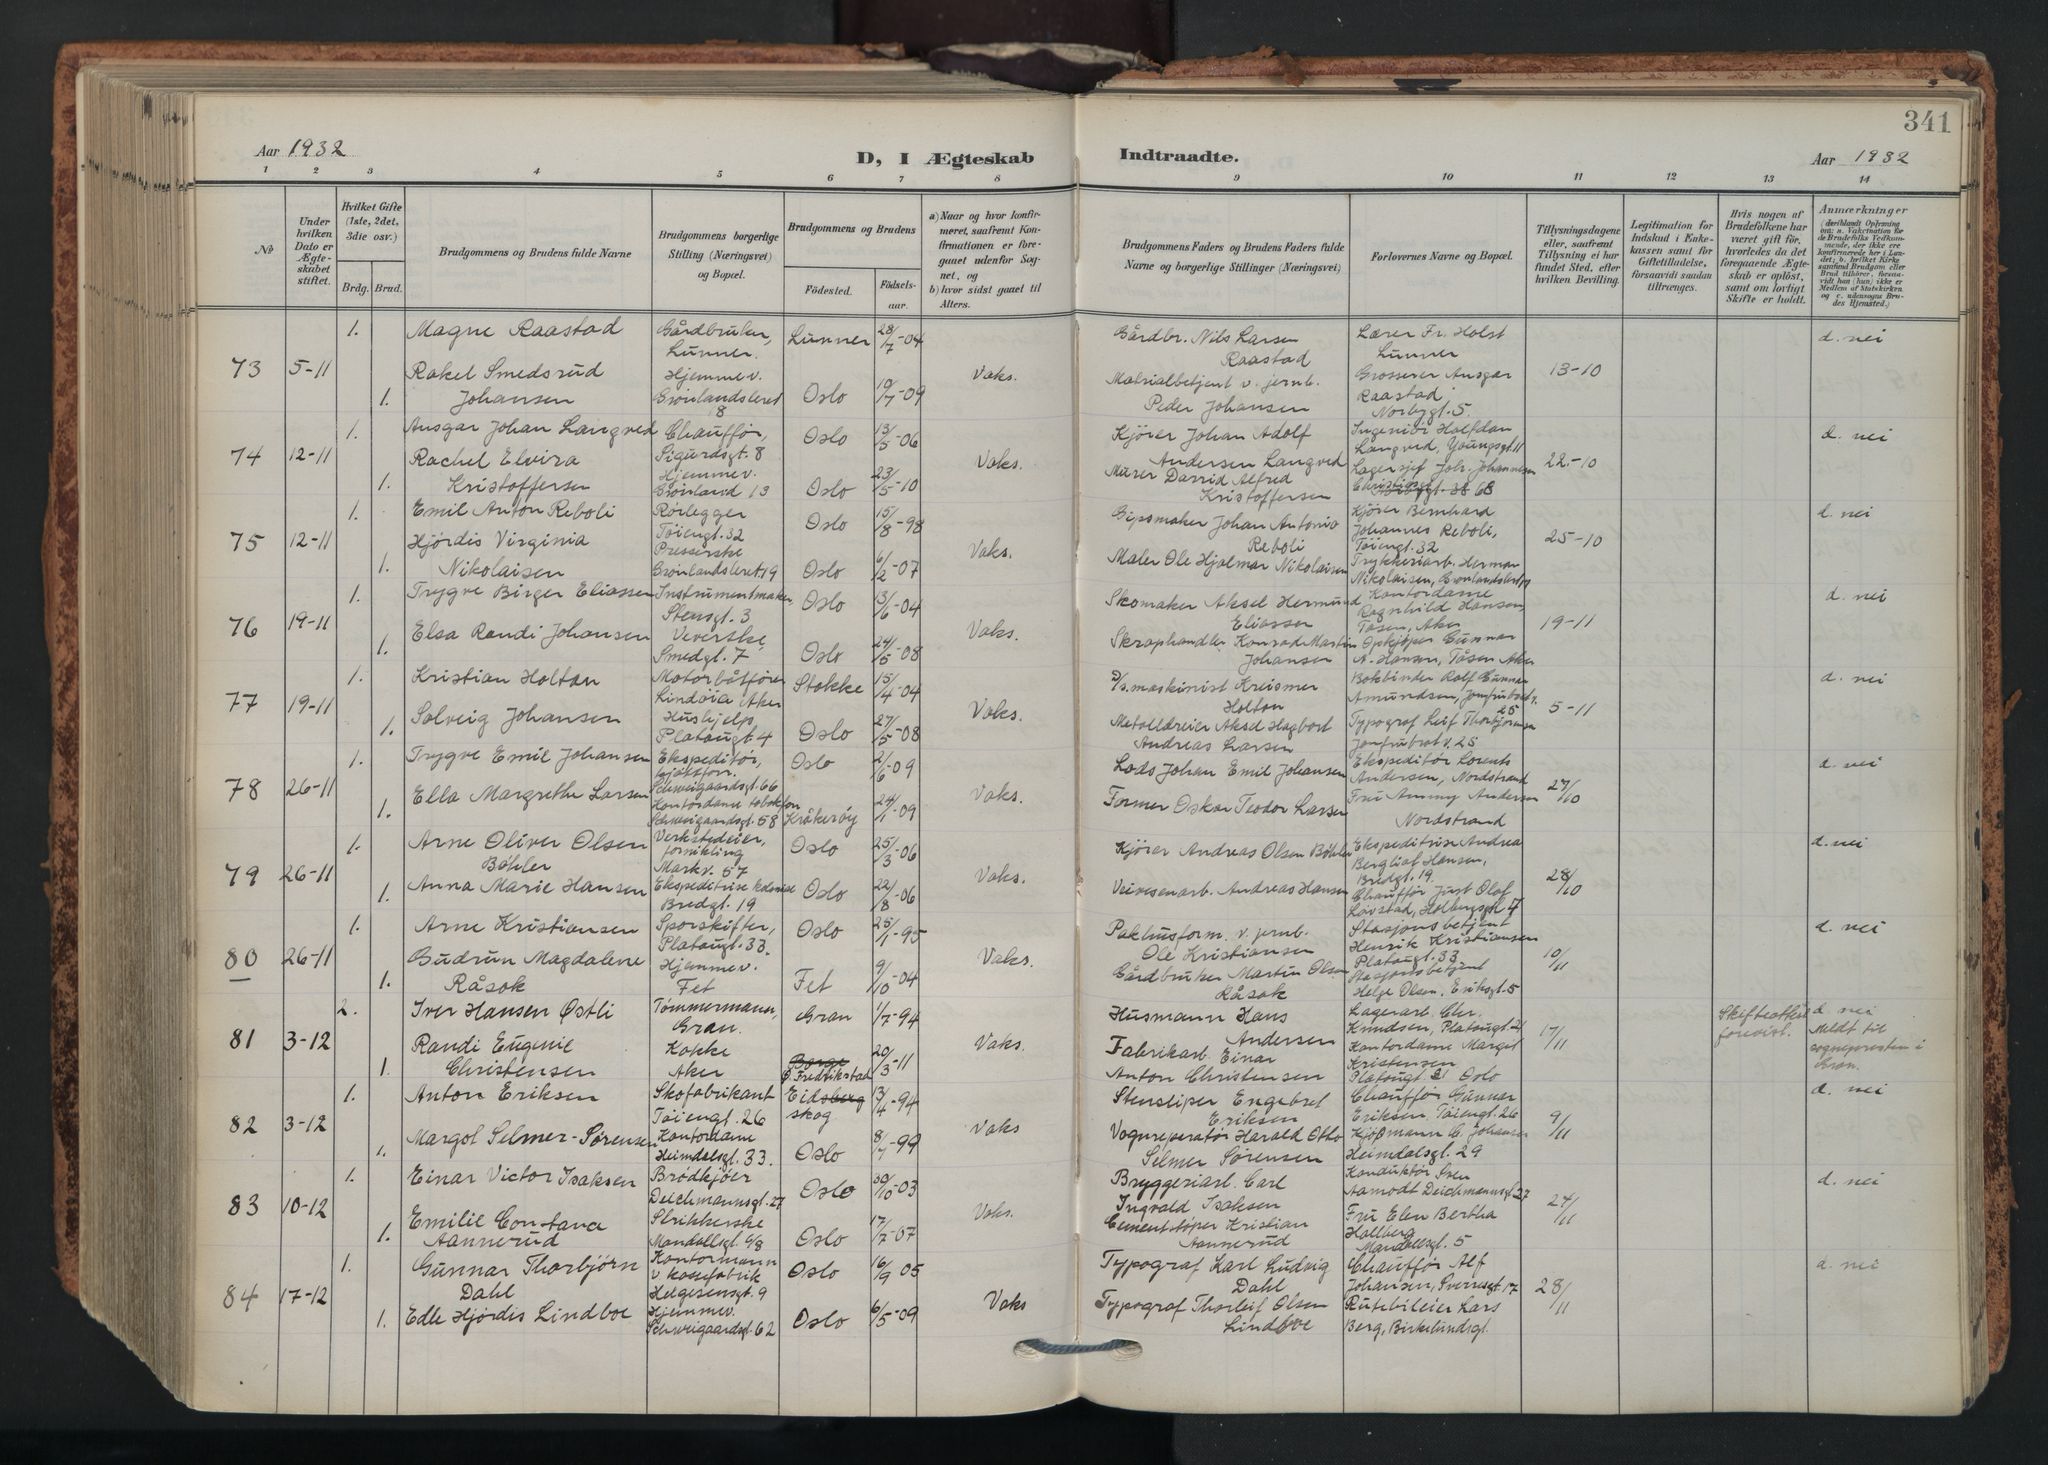 341
Aar 1932
D, I Ægteskab Indtraadte.
Aar 1932
1 2 3 4 5 6 7 8 9 10 11 12 13 14
No
Under hvilken Dato er Ægteskabet stiftet.
Hvilket Gifte (1ste, 2det, 3die osv.)
Brdg. Brud.
Brudgommens og Brudens fulde Navne
Brudgommens borgerlige Stilling (Næringsvei) og Bopæl.
Brudgommens og Brudens
Fødested. Fødselsaar.
a) Naar og hvor konfirmeret, saafremt Konfirmationen er foregaaet udenfor Sognet, og
b) hvor sidst gaaet til Alters.
Brudgommens Faders og Brudens Faders fulde Navne og borgerlige Stillinger (Næringsvei)
Forlovernes Navne og Bopæl.
Tillysningsdagene eller, saafremt Tillysning ei har fundet Sted, efter hvilken Bevilling.
Legitimation for Indskud i Enkekassen samt for Giftetilladelse, forsaavidt saadan tiltrænges.
Hvis nogen af Brudefolkene har været gift før, hvorledes da det foregaaende Ægteskab er opløst, samt om lovligt Skifte er holdt.
Anmærkninger
73 5-11
1. Magne Raastad Gårdbruker, Lunner. Lunner 28/7-04
1. Rakel Smedsrud Johansen Hjemmev. Grønlandsleret 8 Oslo 19/7-09
Vaks.
Gårdbr. Nils Larsen Raastad
Matrialbetjent v. jernb. Peder Johansen
Lærer Fr. Holst Lunner
Grosserer Ansgar Raastad Norbygt. 5.
13-10
d. nei
74 12-11
1. Ansgar Johan Langved Chauffør, Sigurdsgt. 8 Oslo 13/5-06
1. Rachel Elvira Kristoffersen Hjemmev. Grønland 13 Oslo 23/5-10
Vaks.
Kjører Johan Adolf Andersen Langved
Murer Darrid Alfred Kristoffersen
Ingeniør Halfdan Langved, Youngsgt. 11
Lagersjef Joh. Johannesen
22-10
d. nei
75 12-11
1. Emil Anton Reboli Rørlegger Tøiengt. 32 Oslo 15/8-98
1. Hjørdis Virginia Nikolaisen Presserske Grønlandsleret. 19 Oslo 6/2-07
Vaks.
Gipsmaker Johan Antonio Reboli
Maler Ole Hjalmar Nikolaisen
Kjører Bernhard Johannes Reboli, Tøiengt. 32
Trykkeriarb. Herman Nikolaisen, Grønlandsleret 19
25-10
d. nei
76 19-11
1. Trygve Birger Eliassen Instrumentmaker, Stensgt. 3 Oslo 13/6-04
1. Elsa Randi Johansen Veverske, Smedgt. 7 Oslo 24/5-08
Vaks.
Skomaker Aksel Hermund Eliassen
Skraphandler Konrad Martin Johansen
Kontordame Ragnhild Hansen Tåsen, Aker
Opkjøper Gunnar A. Hansen, Tåsen Aker
19-11
d. nei
77 19-11
1. Kristian Holtan Motorbåtfører Lindøia Aker Stokke 15/4-04
1. Solveig Johansen Hushjelp, Platougt. 4 Oslo 27/5-08
Vaks.
D/s. maskinist Kreismer Holton
Metalldreier Aksel Hagbart Andreas Larsen
Bokbinder Rolf Gunnar Amundsen, Jomfrubratv. 25
Typograf Leif Thorbjørnsen Jomfrubratv. 25
5-11
d. nei
78 26-11
1. Trygve Emil Johansen Ekspeditør, Schweigaardsgt. 66 Oslo 2/6-09
1. Ella Margrethe Larsen Kontordame Schweigaardsgt. 58 Kråkerøy 24/1-09
Vaks.
Lods Johan Emil Johansen
Former Oskar Teodor Larsen
Ekspeditør Lorents Andersen, Nordstrand
Fru Ammy Andersen Nordstrand
27/10
d. nei
79 26-11
1. Arne Oliver Olsen Böhler Verkstedeier, fornikling Markv. 57 Oslo 25/3-06
1. Anna Marie Hansen Ekspeditrise kolonial Bredgt. 19 Oslo 22/8-06
Vaks.
Kjører Andreas Olsen Böhler
Veivesenarb. Andreas Hansen
Ekspeditrise Andrea Bergliot Hansen, Bredgt. 19.
Chauffør Just Olaf Løvstad, Holbergsgt. 4
28/10
d. nei
80 26-11
1. Arne Kristiansen Sporskifter, Platougt. 33. Oslo 25/1-95
1. Gudrun Magdalene Råsok Hjemmev. Fet Fet 9/10-04
Vaks.
Pakhusform. v. jernb. Ole Kristiansen
Gårdbruker Martin Olsen Råsok
Stasjonsbetjent Henrik Kristiansen Platougt. 33
Stasjonsbetjent Helge Olsen, Eriksgt. 5
10/11
d. nei
81 3-12
2. Iver Hansen Østli Tømmermann, Gran. Gran 1/7-94
1. Randi Eugenie Christensen Kokke Aker Borge p. Fredrikstad 20/3-11
Vaks.
Husmann Hans Andersen
Fabrikarb. Einar Anton Christensen
Lagerarb. Chr. Knudsen, Platougt. 21
Kontordame Margit Kristensen Platougt. 21 Oslo
17/11
Skifteattest forevist.
d. nei
Meldt til sognepresten i Gran.
82 3-12
1. Anton Eriksen Skofabrikant Tøiengt. 26 Eidsberg skog 13/4-94
1. Margot Selmer-Sørensen Kontordame Heimdalsgt. 33. Oslo 8/7-99
Vaks
Stensliper Engebret Eriksen
Vognreperatør Harald Otto Selmer Sørensen
Chauffør Gunnar Eriksen Tøiengt. 26
Kjøpmann C. Johansen Heimdalsgt. 29
9/11
d. nei
83 10-12
1. Einar Victor Isaksen Brødkjører Deichmannsgt. 27 Oslo 30/10-03
1. Emilie Constance Aannerud Strikkerske Mandallsgt. 6/8 Oslo 17/7-07
Vaks.
Bryggeriarb. Carl Ingvald Isaksen
Cementstøper Kristian Aannerud
Konduktør Sven Aamodt Deichmannsgt. 27
Fru Elen Bertha Hallberg Mandallsgt. 5
24/11
d. nei
84 17-12
1. Gunnar Thorbjørn Dahl Kontormann Helgesensgt. 9 Oslo 16/9 05
1. Edle Hjørdis Lindboe Hjemmev. Schweigaardsgt. 62 Oslo 6/5-09
Vaks
Typograf Karl Ludvig Dahl
Typograf Thorleif Olsen Lindboe
Chauffør Alf Johansen, Sverresgt. 17
Rutebileier Lars Berg, Birkelundsgt.
28/11
d. nei